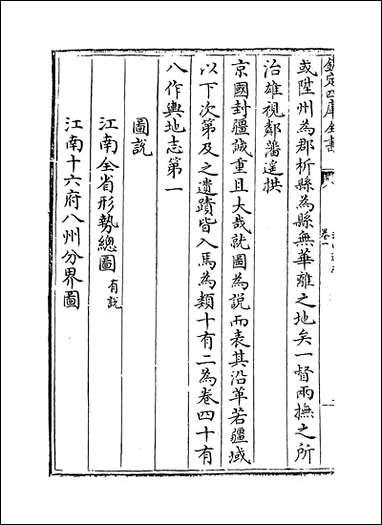 欽定四庫全書
卷一
或陞州為郡析縣為縣無華離之地矣一督兩撫之所
治雄視鄰藩遥拱
京國封疆誠重且大哉就圖為說而表其沿革若疆域
以下次第及之遺蹟皆入焉為類十有二為卷四十有
八作輿地志第一
圖說
江南全省形勢總圖有說
江南十六府八州分界圖